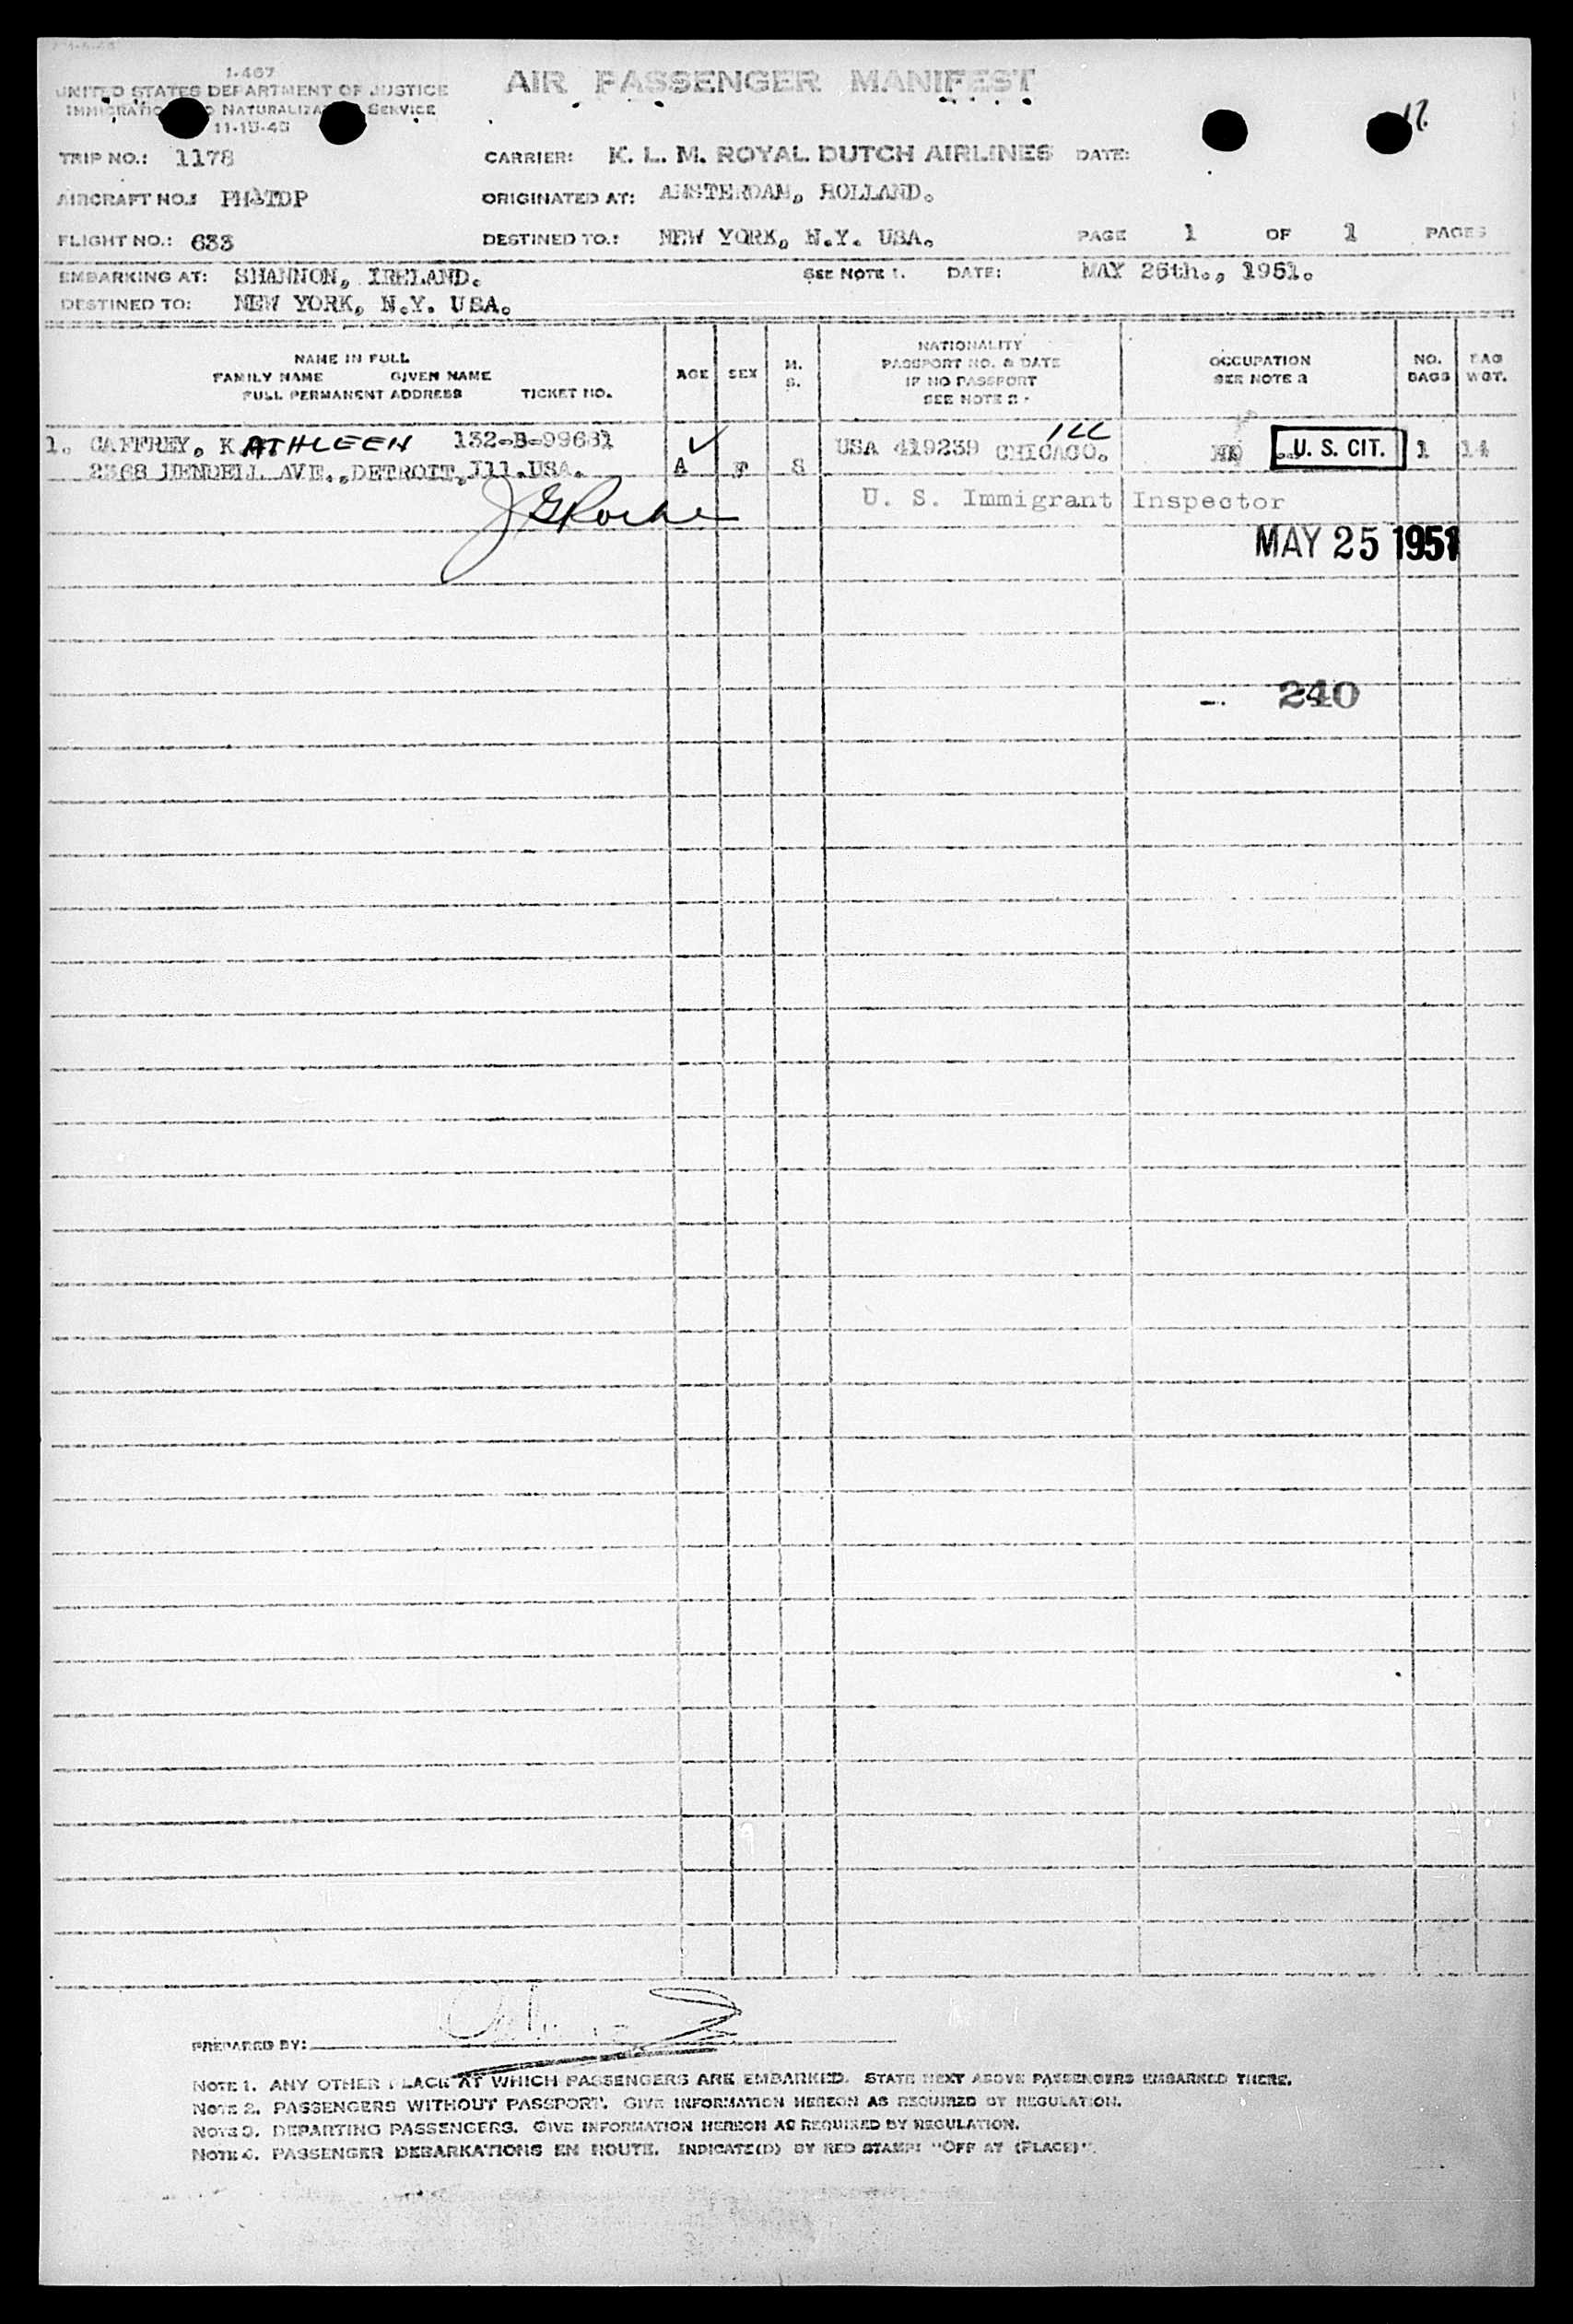 1-467
UNITED STATES DEPARTMENT OF JUSTICE
AIR PASSENGER MANIFEST
IMMIGRATION AND NATURALIZATION SERVICE
11-15-45
17.
TRIP NO.: 1178 CARRIER: K. L. M. ROYAL DUTCH AIRLINES DATE:
AIRCRAFT NO.: PH-TDP ORIGINATED AT: AMSTERDAM, HOLLAND.
FLIGHT NO.: 633 DESTINED TO.: NEW YORK, N.Y. USA. PAGE 1 OF 1 PAGES
EMBARKING AT: SHANNON, IRELAND. SEE NOTE 1. DATE: MAY 26th., 1951.
DESTINED TO: NEW YORK, N.Y. USA.
NAME IN FULL
FAMILY NAME GIVEN NAME
FULL PERMANENT ADDRESS TICKET NO.
AGE SEX M. S.
NATIONALITY
PASSPORT NO. & DATE
IF NO PASSPORT
SEE NOTE 2.
OCCUPATION
SEE NOTE 3
NO. BAGS
BAG WGT.
1. CAFFREY, KATHLEEN 132-B-99681 USA 419239 CHICAGO. ILL U. S. CIT. 1 14
2368 AVE., DETROIT, Ill. USA. A F S
U. S. Immigrant Inspector
MAY 25 1951
240
PREPARED BY:
NOTE 1. ANY OTHER PLACE AT WHICH PASSENGERS ARE EMBARKED. STATE NEXT ABOVE PASSENGERS EMBARKED THERE.
NOTE 2. PASSENGERS WITHOUT PASSPORT. GIVE INFORMATION HEREON AS REQUIRED BY REGULATION.
NOTE 3. DEPARTING PASSENGERS. GIVE INFORMATION HEREON AS REQUIRED BY REGULATION.
NOTE 4. PASSENGER DEBARKATIONS EN ROUTE. INDICATE(D) BY RED STAMP: "OFF AT (PLACE)".